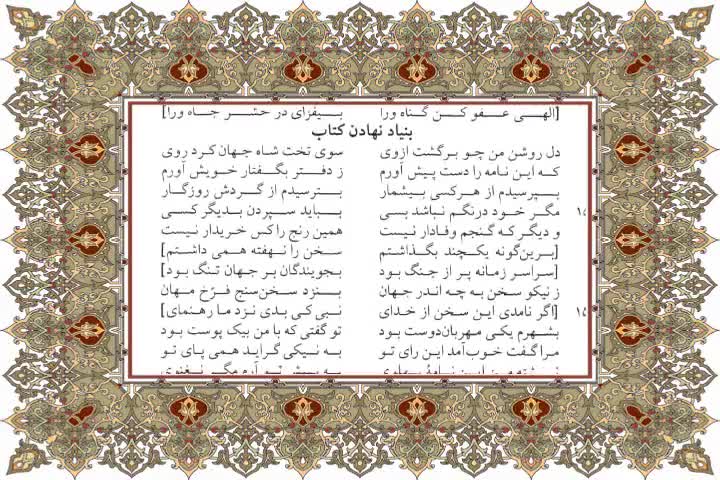 [الهی عفو کن گناه ورا بیفزای در حشر جاه ورا]
بنیاد نهادن کتاب
دل روشن من چو برگشت ازوی سوی تخت شاه جهان کرد روی
که این نامه را دست پیش آورم ز دفتر بگفتار خویش آورم
بپرسیدم از هرکسی بیشمار بترسیدم از گردش روزگار
مگر خود درنگم نباشد بسی بباید سپردن بدیگر کسی
و دیگر که گنجم وفادار نیست همین رنج را کس خریدار نیست
[برین‌گونه یکچند بگذاشتم سخن را نهفته همی داشتم]
[سراسر زمانه پر از جنگ بود بجویندگان بر جهان تنگ بود]
ز نیکو سخن به چه اندر جهان بنزد سخن‌سنج فرّخ مهان
[اگر نامدی این سخن از خدای نبی کی بدی نزد ما رهنمای]
بشهرم یکی مهربان‌دوست بود تو گفتی که با من بیک پوست بود
مرا گفت خوب آمد این رای تو به نیکی گراید همی پای تو